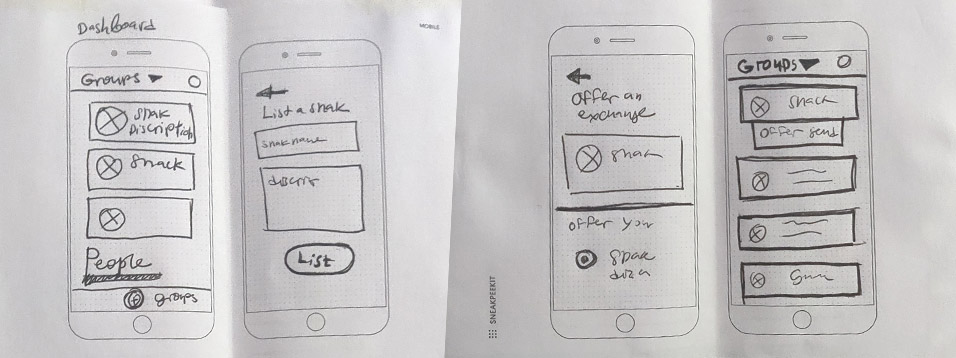 Dashboard
Groups
Snak
Discription
Snack
People
groups
MOBILE
List a snak
snak name
discrip
List
SNEAKPEEKIT
Offer an
exchange
snak
offer your
Snak
Groups
Snack
Offer send